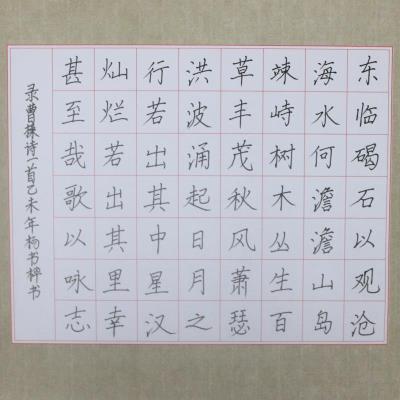 东临碣石以观沧
海水何澹澹山岛
竦峙树木丛生百
草丰茂秋风萧瑟
洪波涌起日月之
行若出其中星汉
灿烂若出其里幸
甚至哉歌以咏志
录曹操诗一首乙未年杨书桦书